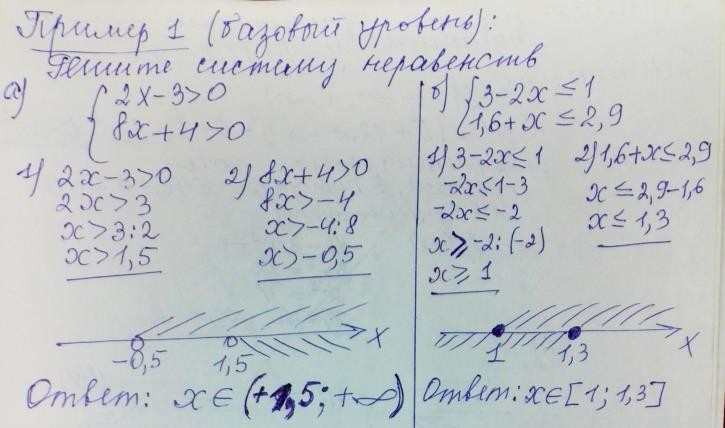 Пример 1 (базовый уровень):
Решите систему неравенств
а) { 2x-3>0
8x+4>0
1) 2x-3>0
2x>3
x>3:2
x>1,5
2) 8x+4>0
8x>-4
x>-4:8
x>-0,5
-0,5 1,5 x
Ответ: x∈(+1,5; +∞)
б) { 3-2x≤1
1,6+x≤2,9
1) 3-2x≤1
-2x≤1-3
-2x≤-2
x⩾-2:(-2)
x⩾1
2) 1,6+x≤2,9
x≤2,9-1,6
x≤1,3
1 1,3 x
Ответ: x∈[1; 1,3]